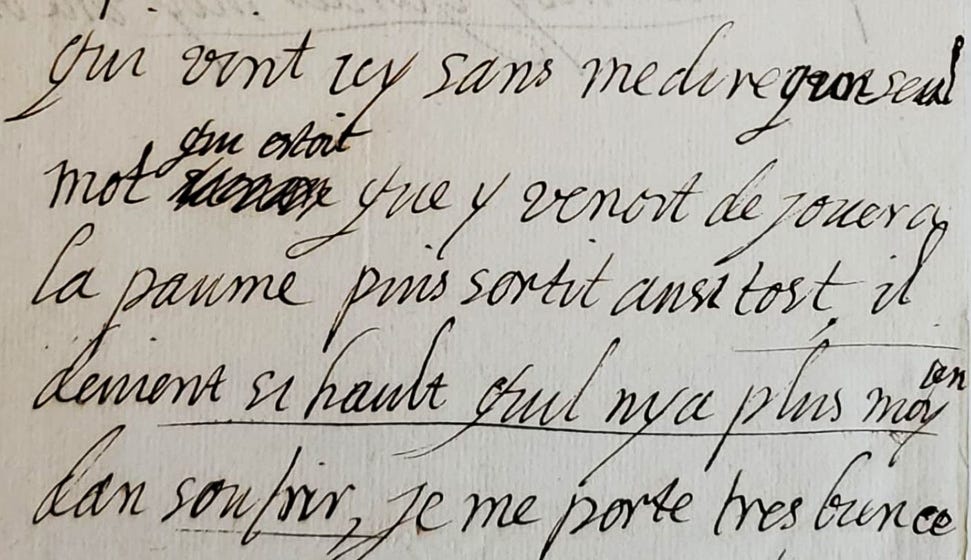 qui vint icy sans me dire qun seul
mot qui estoit que y venoit de jouer a
la paume puis sortit ausi tost, il
devient si hault quil nya plus moyen
dan soufrir, je me porte tres bien ce